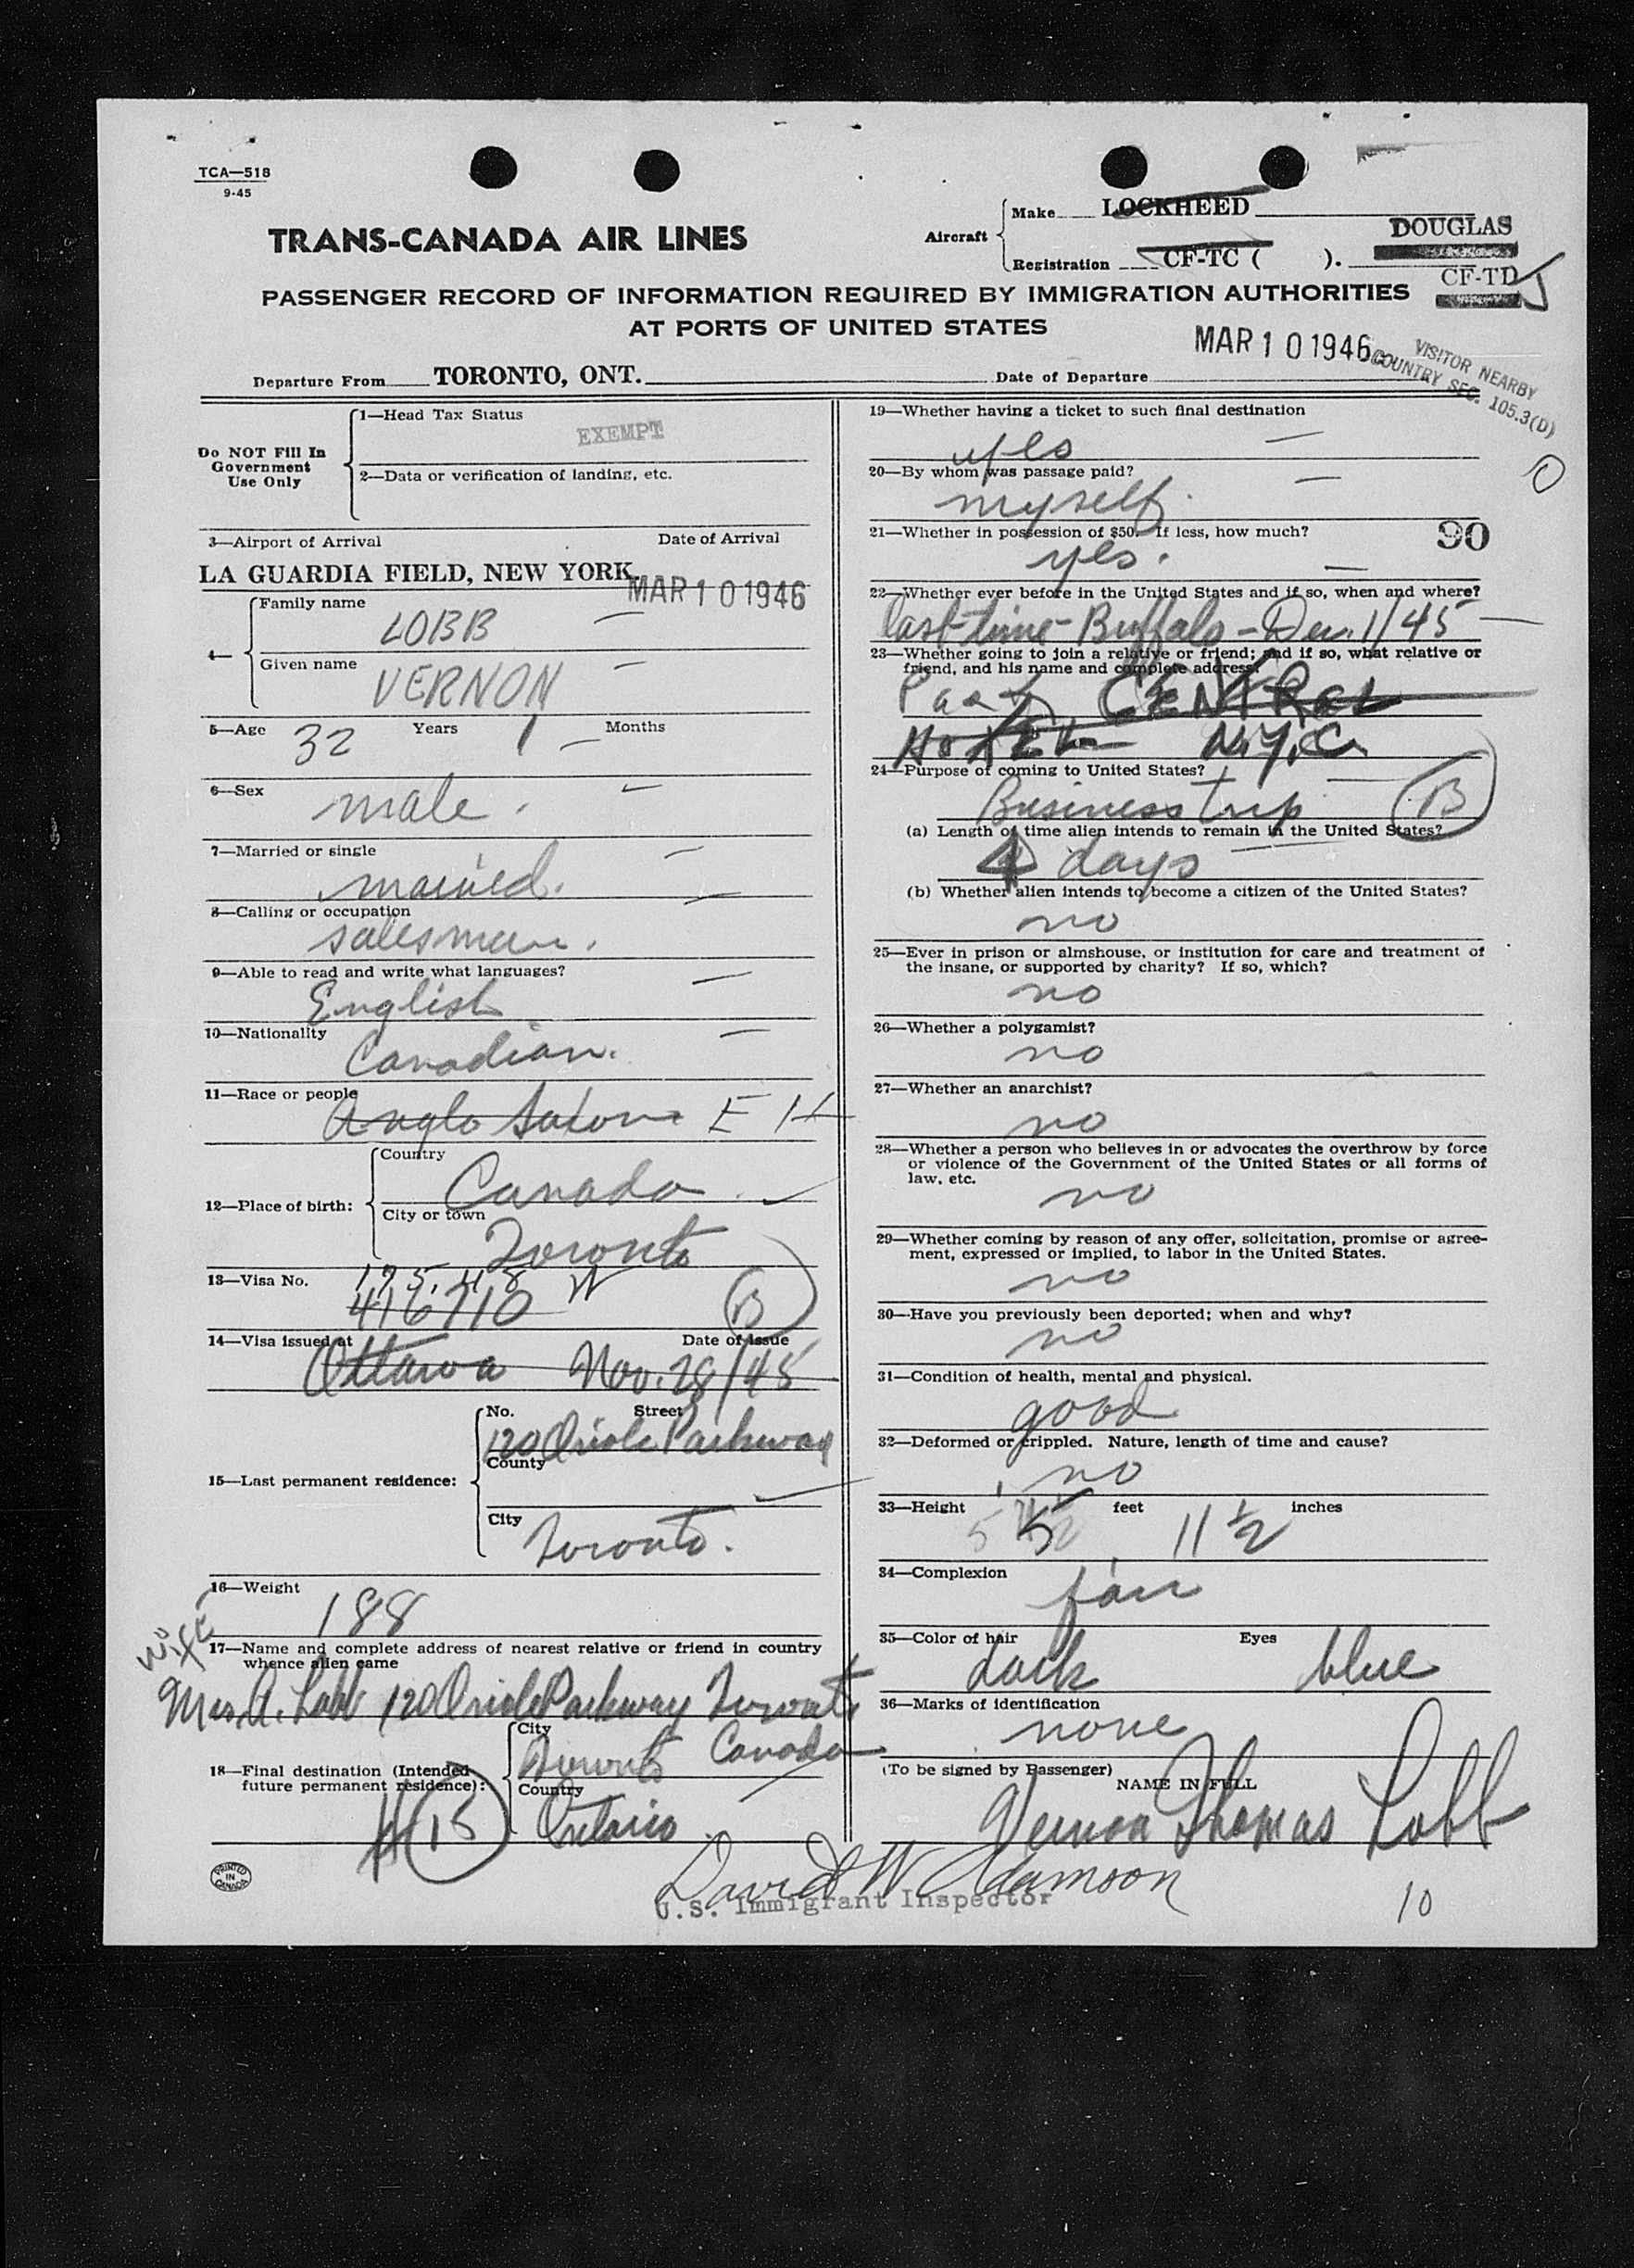 TCA—518
9-45
TRANS-CANADA AIR LINES
Aircraft
Make LOCKHEED
DOUGLAS
Registration CF-TC ( ).
CF-TD J
PASSENGER RECORD OF INFORMATION REQUIRED BY IMMIGRATION AUTHORITIES
AT PORTS OF UNITED STATES
MAR 10 1946
VISITOR NEARBY
COUNTRY SEC. 105.3(D)
Departure From TORONTO, ONT. Date of Departure
Do NOT Fill In
Government
Use Only
1—Head Tax Status
EXEMPT
2—Data or verification of landing, etc.
3—Airport of Arrival Date of Arrival
LA GUARDIA FIELD, NEW YORK
MAR 10 1946
4—
Family name
LOBB
Given name
VERNON
5—Age 32 Years 1 Months
6—Sex
male.
7—Married or single
married.
8—Calling or occupation
salesman.
9—Able to read and write what languages?
English
10—Nationality
Canadian.
11—Race or people
Anglo Saxon E
12—Place of birth:
Country
Canada
City or town
Toronto
13—Visa No.
175.48 W
416710
B
14—Visa issued at Date of Issue
Ottawa Nov. 28/45
15—Last permanent residence:
No. Street
120 Oriole Parkway
County
City
Toronto.
16—Weight
188
wife
17—Name and complete address of nearest relative or friend in country
whence alien came
Mrs. A. Lobb 120 Oriole Parkway Toronto
Canada
18—Final destination (Intended
future permanent residence):
City
Toronto
Country
Ontario
19—Whether having a ticket to such final destination
yes
20—By whom was passage paid?
myself.
O
21—Whether in possession of $50. If less, how much?
yes.
90
22—Whether ever before in the United States and if so, when and where?
last time - Buffalo - Dec. 1/45
23—Whether going to join a relative or friend; and if so, what relative or
friend, and his name and complete address.
Park CENTRAL
HOTEL N.Y.C.
24—Purpose of coming to United States?
Business trip B
(a) Length of time alien intends to remain in the United States?
4 days
(b) Whether alien intends to become a citizen of the United States?
no
25—Ever in prison or almshouse, or institution for care and treatment of
the insane, or supported by charity? If so, which?
no
26—Whether a polygamist?
no
27—Whether an anarchist?
no
28—Whether a person who believes in or advocates the overthrow by force
or violence of the Government of the United States or all forms of
law, etc.
no
29—Whether coming by reason of any offer, solicitation, promise or agree-
ment, expressed or implied, to labor in the United States.
no
30—Have you previously been deported; when and why?
no
31—Condition of health, mental and physical.
good
32—Deformed or crippled. Nature, length of time and cause?
no
33—Height 5 feet 11 ½ inches
34—Complexion
fair
35—Color of hair Eyes
dark blue
36—Marks of identification
none
(To be signed by Passenger)
NAME IN FULL
Vernon Thomas Lobb
PRINTED
IN
CANADA
David W Adamson
U.S. Immigrant Inspector
10